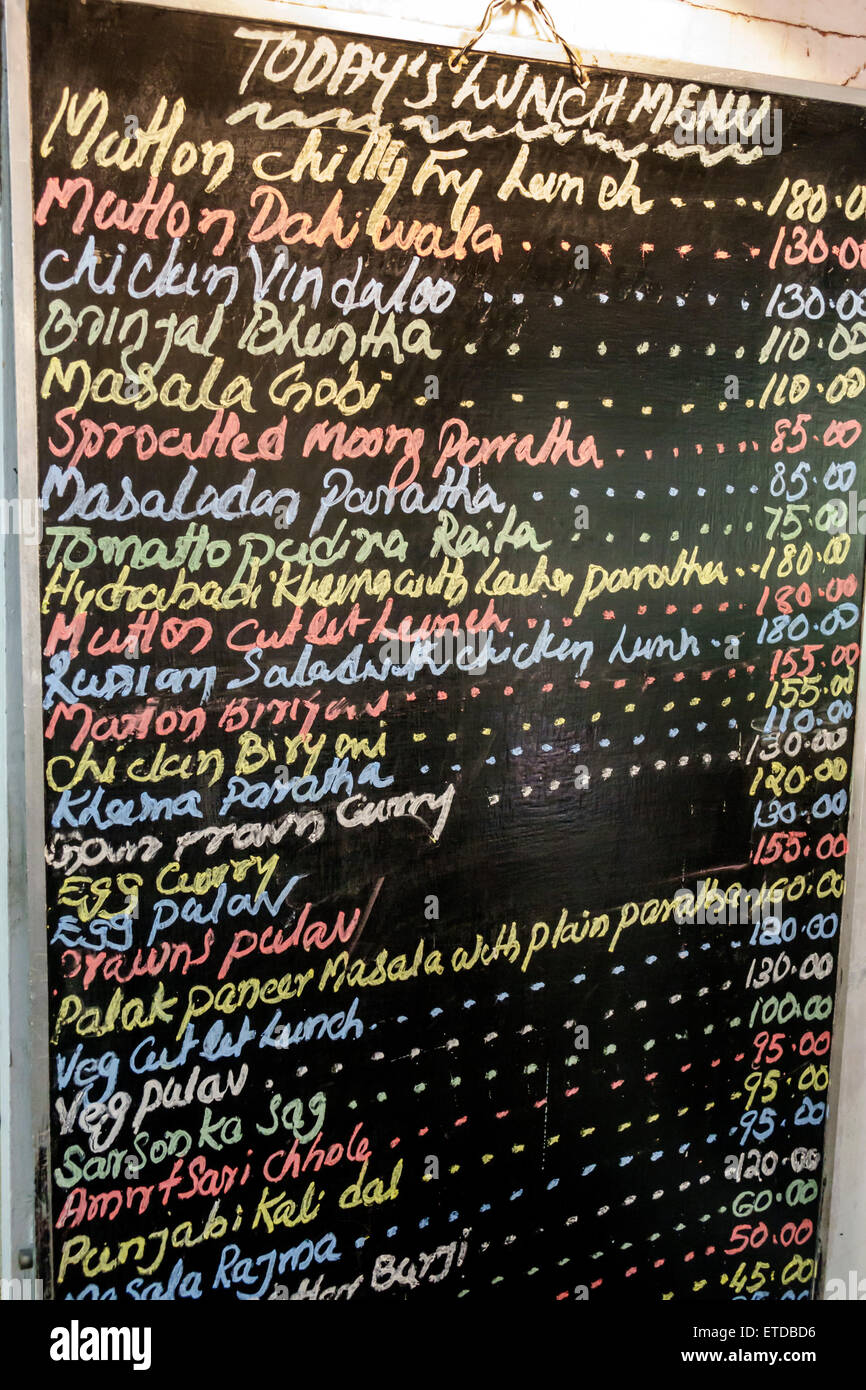 TODAY'S LUNCH MENU
Mutton chilly fry Lunch .... 180.0
Mutton Dahiwala ........ 130.00
Chicken Vindaloo ...... 130.00
Brinjal Bhurtha ....... 110.00
Masala Gobi ........ 110.00
Sproutted Moong Parratha ...... 85.00
Masaladar Parratha ...... 85.00
Tomatto padina Raita ..... 75.00
Hydrabadi Kheema with Lacher parratha .. 180.00
Mutton cutlet Lunch ....... 180.00
Russian Salad with chicken Lunch .. 180.00
Mutton Biriyani ........ 155.00
Chicken Biryani ........ 155.00
Kheema parratha ........ 110.00
Goan Prawn Curry ......... 130.00
Egg Curry 120.00
Egg palav 130.00
Prawns palav 155.00
Palak paneer Masala with plain paratha. 160.00
Veg cutlet Lunch ....... 120.00
Veg palav ........ 130.00
Sarson ka sag ....... 100.00
Amritsari chhole ....... 95.00
Punjabi Kali dal ....... 95.00
Masala Rajma ....... 95.00
Burji ....... 120.00
60.00
50.00
45.00
alamy
Image ID: ETDBD6
www.alamy.com